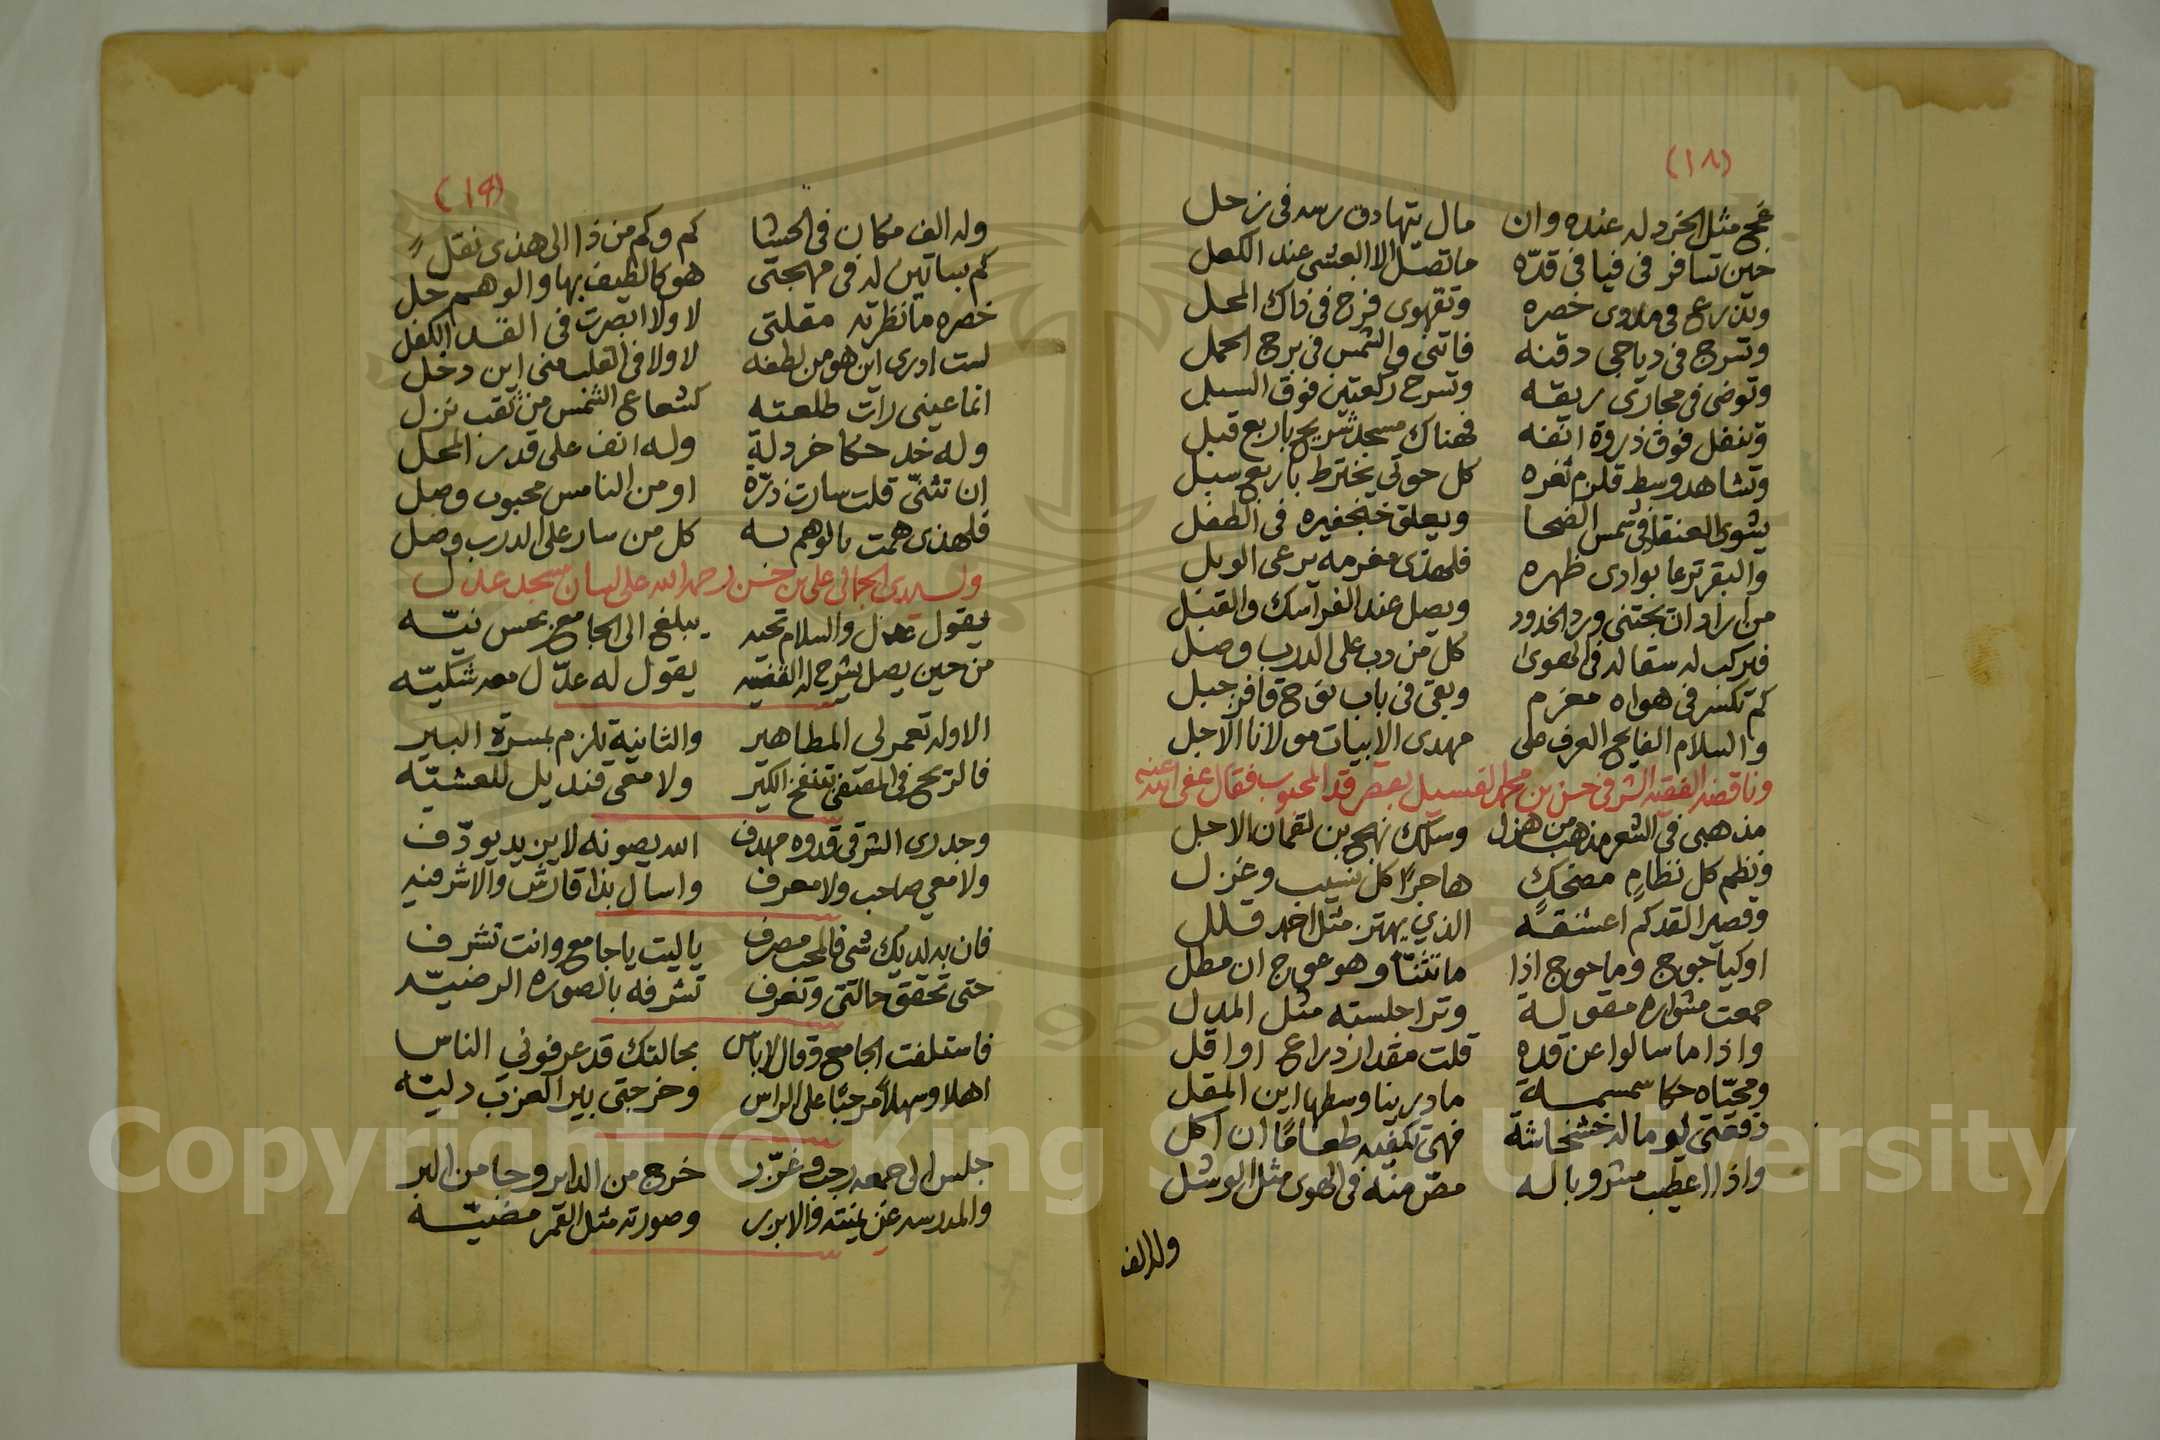 (١٨)
مثل الخردله عنده وان مال يتهادى رسه فى زحل
حين تسافر فى فيافى قدّه ما تصل الا العشى عند الكعل
وتذرع فى خصره وتقهوى فزخ فى ذاك المحل
وتسرج فى دياجى دقنه فاتنى والشمس فى برج الحمل
وتوضى فى مجارى ريقه وتسرح ركعتين فوق السبل
وتنفل فوق ذروة انفه فهناك مسجد شريح باربع قبل
وتشاهد وسط قلزم ثغره كل حوتى يخترط باربع سبل
يشوى العنقا فى شمس الضحا ويعلق خنجفيره فى الطفل
والبقر ترعا بوادى ظهره فلهذى مغرمه يرعى الوبل
من اراد ان يجتنى ورد الخدود ويصل عند الفراسك والقبل
فيركب له سقاله فى الهوى كل من دب على الدرب وصل
كم تكسر فى هواه مغرم وبقى فى باب نوح قافر جبل
والسلام الفايح العرف على مهدى الابيات مولانا الاجل
وناقضه الفقيه الشرفى حسن بن محمد الفسيل بقصر قد المحبوب فقال عفى الله عنه
مذهبى فى الشعر مذهب من هزل وسلك نهج بن لقمان الاجل
ونظم كل نظامٍ مضحكٍ هاجرًا كل نسيب وغزل
وقصير القد كم اعشقه الذي يهتز مثل احمد قلل
اوكياجوج وماجوج اذا ما تثنّا وهو عوج ان مطل
جمعت مشواره مقولة وترا جلسته مثل المدل
واذا ما سالوا عن قده قلت مقدار ذراع او اقل
ومحيّاه حكا سمسمة ما درينا وسطها اين المقل
نفقتى ليوما له خشخاشة فهى تكفيه طعامًا ان اكل
واذا اعطب مشروبا له مصّ منه فى الهوى مثل الوشل
وله الف
(١٩)
وله الف مكان فى الحشا كم وكم من ذا الى هذى نقل
كم بساتين له فى مهجتى هو كالطيف بها والوهم حل
خصره ما نظرته مقلتى لا ولا ابصرت فى القد الكفل
لست ادرى اين هو من لطفه لا ولا فى القلب منى اين دخل
انما عينى رات طلعته كشعاع الشمس من ثقب نزل
وله خد حكا خردلةٍ وله انف على قدر المحل
ان تثنّى قلت سارت ذرّة او من النامس محبوب وصل
فلهذى همت بالوهم له كل من سار على الدرب وصل
ولسيدى الجمالى على بن حسن رحمه الله على لسان مسجد عدل
يقول عدل والسلام تحيه يبلغ الى الجامع بحسن نيّه
من حين يصل يشرح له القضيه يقول له عدّل معه شكيّه
الاوله تعمر لى المطاهير والثانيه يلزم بمسرة البير
فالريح فى المقتفى تنفخ الكير ولا معى قنديل للعشيّه
وجدرى الشرقى قدوه مهدف الله يصونه لا يزيد يودّف
ولا معى صاحب ولا معرف واسال بذا قارش والاشرفيه
فان به لديك شى فالمحب مصرف ياليت يا جامع وانت تشرف
حتى تحقق حالتى وتعرف تشرفه بالصوره الرضيّه
فاستلفت الجامع وقال لاباس بحالتك قد عرفونى الناس
اهلا وسهلا مرحبًا على الراس وخرجتى بير العزب دليّه
جلس الى جمعه رجب وغزّر خرج من الداير وجا من البر
والمدرسه عن يمنته والابزر وصورته مثل القمر مضيّه